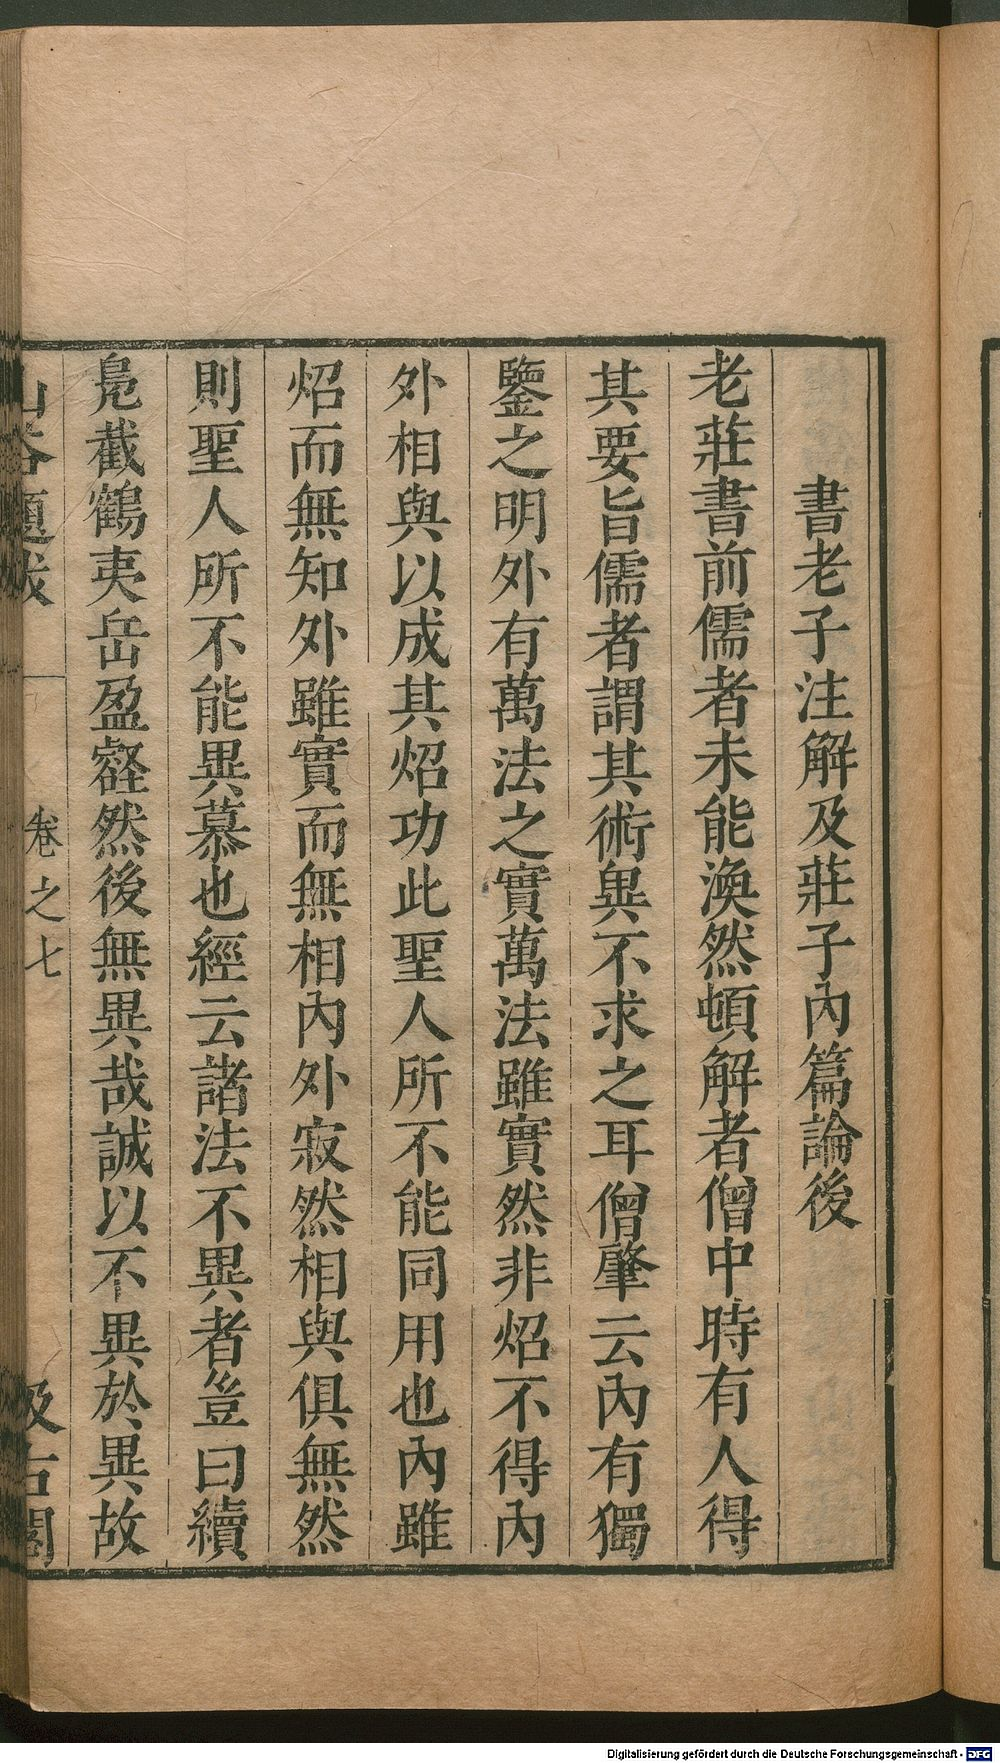 書老子注解及莊子內篇論後
老莊書前儒者未能渙然頓解者僧中時有人得
其要旨儒者謂其術異不求之耳僧肇云內有獨
鑒之明外有萬法之實萬法雖實然非炤不得內
外相與以成其炤功此聖人所不能同用也內雖
炤而無知外雖實而無相內外寂然相與俱無然
則聖人所不能異慕也經云諸法不異者豈曰續
鳧截鶴夷岳盈壑然後無異哉誠以不異於異故
山谷題跋
卷之七
汲古閣
Digitalisierung gefördert durch die Deutsche Forschungsgemeinschaft - DFG